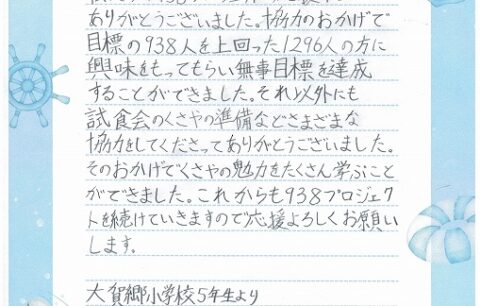 ありがとうございました。協力のおかげで
目標の938人を上回った1296人の方に
興味をもってもらい無事目標を達成
することができました。それ以外にも
試食会のくさやの準備などさまざまな
協力をしてくださってありがとうございました。
そのおかげでくさやの魅力をたくさん学ぶこと
ができました。これからも938プロジェク
トを続けていきますので応援よろしくお願い
します。
大賀郷小学校5年生より